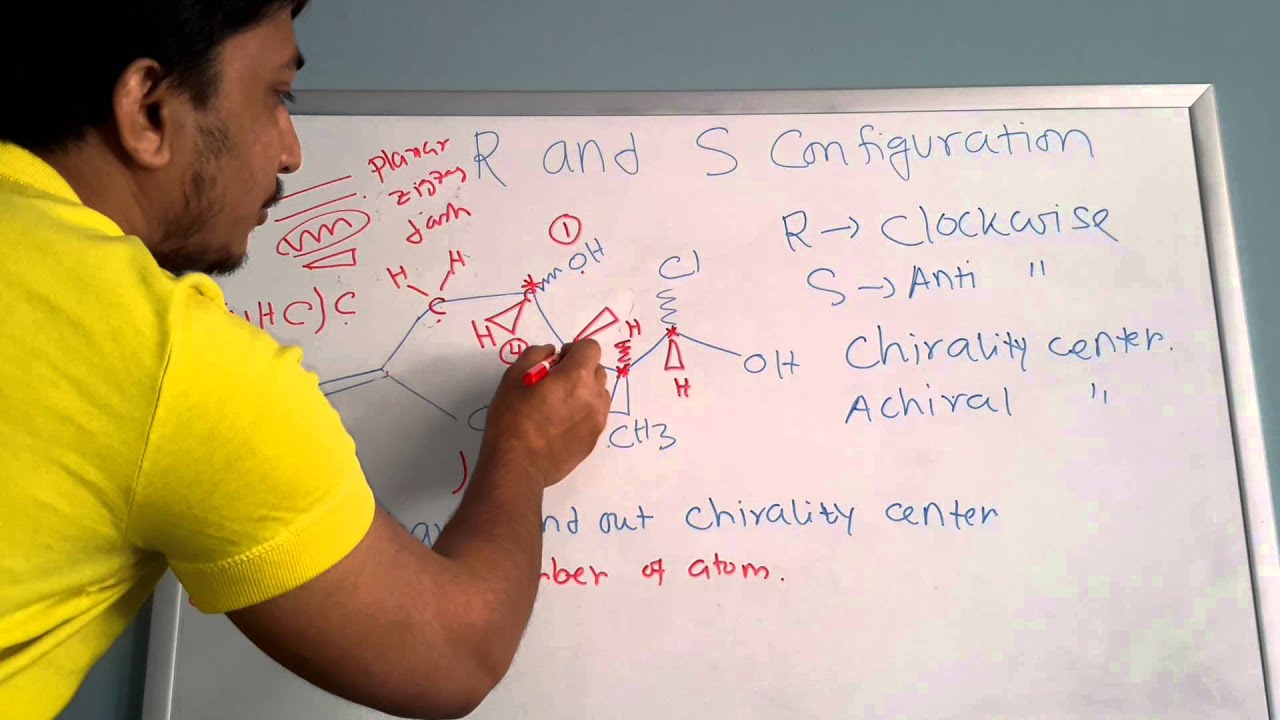 R and S Configuration
planar
zigzag
R → Clockwise
S → Anti "
①
OH
Cl
H H
C
HC) C
H
④
H
OH
H
Chirality center.
Achiral "
CH3
nd out chirality center
ber of atom.